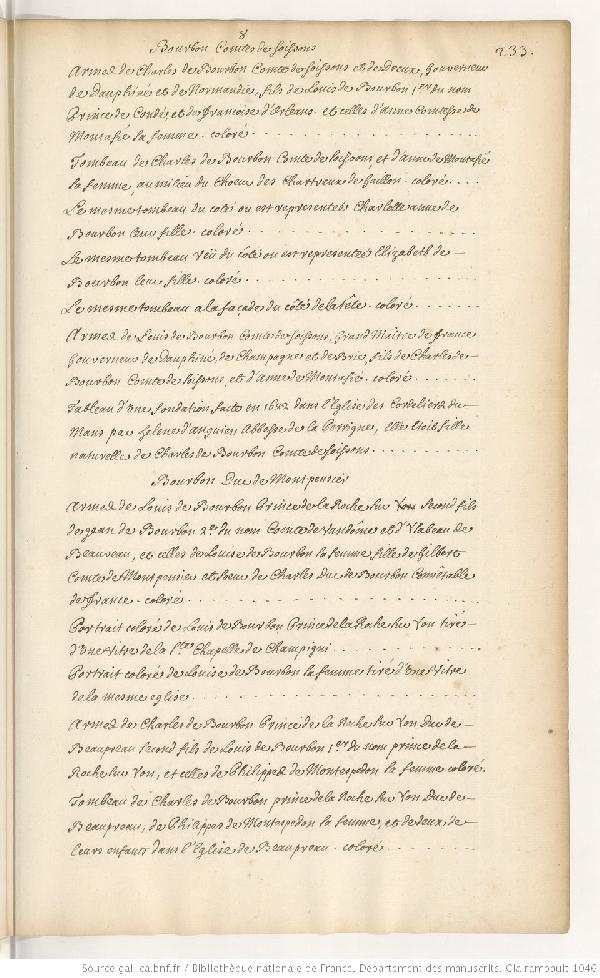 8
233.
Bourbon Comtes de Soissons
Armes de Charles de Bourbon Comte de Soissons et de Dreux, Gouverneur
de Dauphiné et de Normandie, fils de Louis de Bourbon 1er du nom
Prince de Condé, et de françoise d'Orleans. et celles d'anne Comtesse de
Montafie sa femme. coloré
Tombeau de Charles de Bourbon Comte de Soissons, et d'anne de Montafié
sa femme, au milieu du Choeur des Chartreux de Gaillon. coloré
Le mesme tombeau du coté ou est representée Charlotte anne de
Bourbon leur fille. coloré
Le mesme tombeau veü du côté ou est representée Elizabeth de
Bourbon leur fille. coloré
Le mesme tombeau a la façade du côté de la tête. coloré
Armes de Louis de Bourbon Comte de Soissons, Grand Maitre de france
Gouverneur de Dauphiné, de Champagne et de Brie, fils de Charles de
Bourbon Comte de Soissons, et d'anne de Montafié. coloré
Tableau d'Une fondation faite en 1652 dans l'Eglise des Cordeliers du
Mans par helene d'anguien Abbesse de la Perrigne, Elle étoit fille
naturelle de Charles de Bourbon Comte de Soissons
Bourbon Duc de Montpensier
Armes de Louis de Bourbon Prince de la Roche sur Yon second fils
de Jean de Bourbon 2e du nom Comte de Vandôme et d'Ysabeau de
Beauveau, et celles de Louise de Bourbon sa femme fille de Gilbert
Comte de Montpensier et soeur de Charles Duc de Bourbon Connétable
de france. coloré
Portrait coloré de Louis de Bourbon Prince de la Roche sur Yon tiré
d'Une Vitre de la Ste Chapelle de Champigni
Portrait coloré de Louise de Bourbon sa femme tiré d'Une Vitre
de la mesme eglise
Armes de Charles de Bourbon Prince de la Roche sur Yon Duc de
Beaupreau second fils de Louis de Bourbon 1er du nom prince de la
Roche sur Yon, et celles de Philippes de Montespedon sa femme coloré.
Tombeau de Charles de Bourbon prince de la Roche sur Yon Duc de
Beaupreau, de Philippes de Montespedon sa femme, et de deux de
leurs enfants dans l'Eglise de Beaupreau. coloré
Source gallica.bnf.fr / Bibliothèque nationale de France. Département des manuscrits. Clairambault 1046